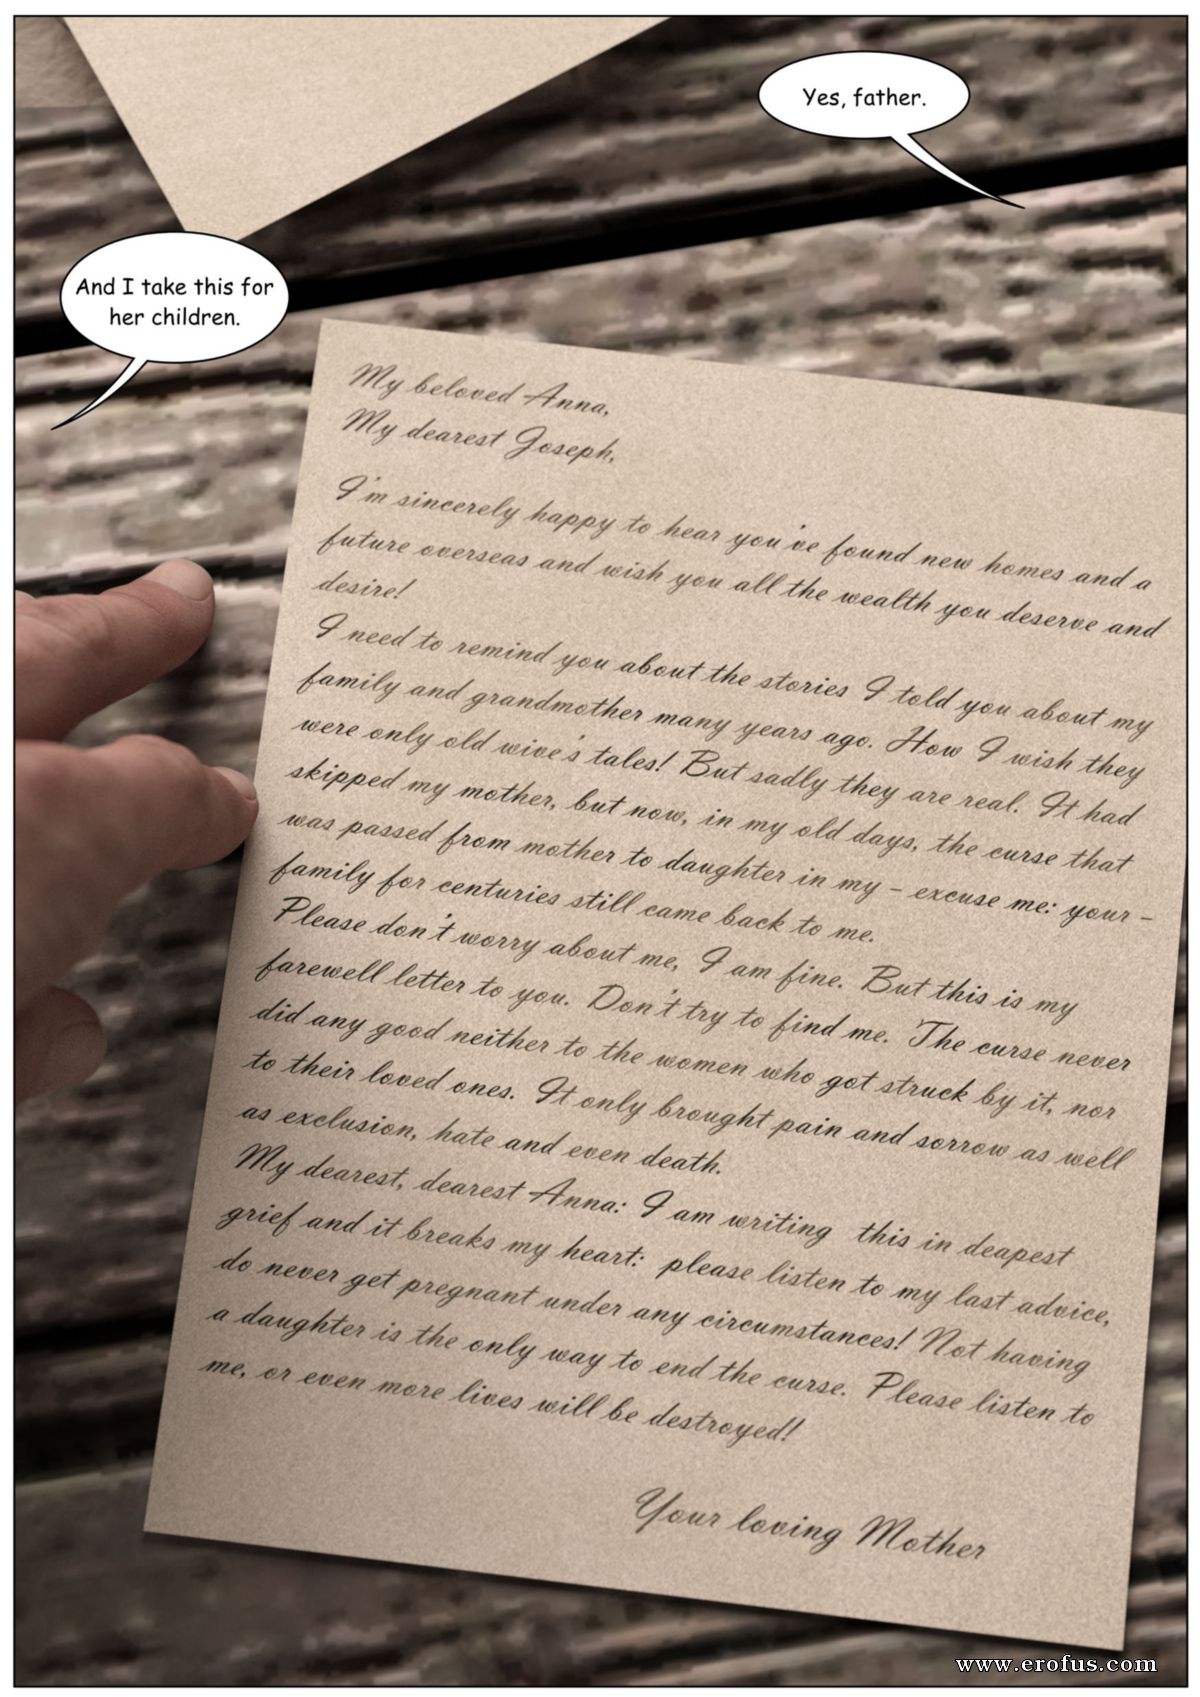 Yes, father.
And I take this for
her children.
My beloved Anna,
My dearest Joseph,
I'm sincerely happy to hear you've found new homes and a
future overseas and wish you all the wealth you deserve and
desire!
I need to remind you about the stories I told you about my
family and grandmother many years ago. How I wish they
were only old wive's tales! But sadly they are real. It had
skipped my mother, but now, in my old days, the curse that
was passed from mother to daughter in my - excuse me: your -
family for centuries still came back to me.
Please don't worry about me, I am fine. But this is my
farewell letter to you. Don't try to find me. The curse never
did any good neither to the women who got struck by it, nor
to their loved ones. It only brought pain and sorrow as well
as exclusion, hate and even death.
My dearest, dearest Anna: I am writing this in deapest
grief and it breaks my heart: please listen to my last advice,
do never get pregnant under any circumstances! Not having
a daughter is the only way to end the curse. Please listen to
me, or even more lives will be destroyed!
Your loving Mother
www.erofus.com